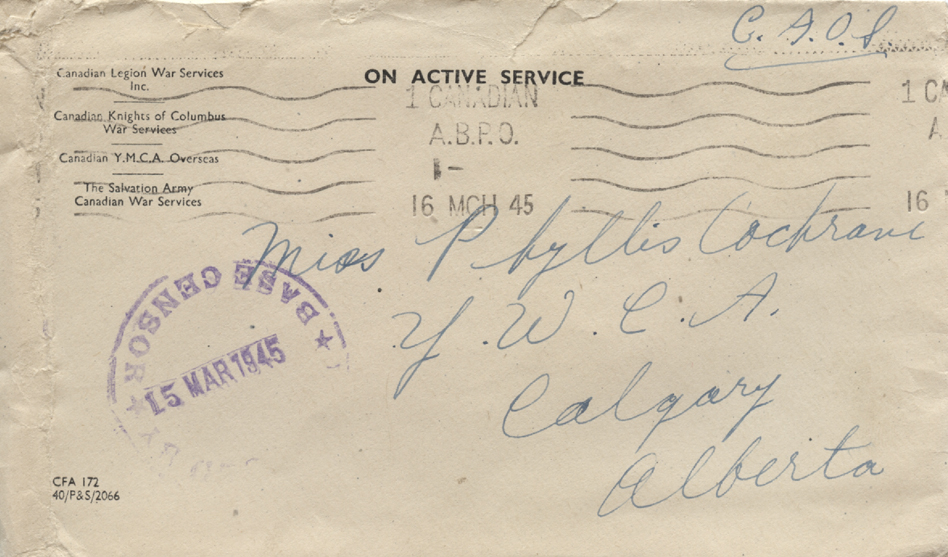 C. A. O. S.
Canadian Legion War Services
Inc.
ON ACTIVE SERVICE
Canadian Knights of Columbus
War Services
Canadian Y.M.C.A. Overseas
The Salvation Army
Canadian War Services
1 CANADIAN
A.B.P.O.
1-
16 MCH 45
1 CA
A
16
Miss Phyllis Cochrane
Y.W.C.A.
Calgary
Alberta
BASE CENSOR
15 MAR 1945
CFA 172
40/P&S/2066